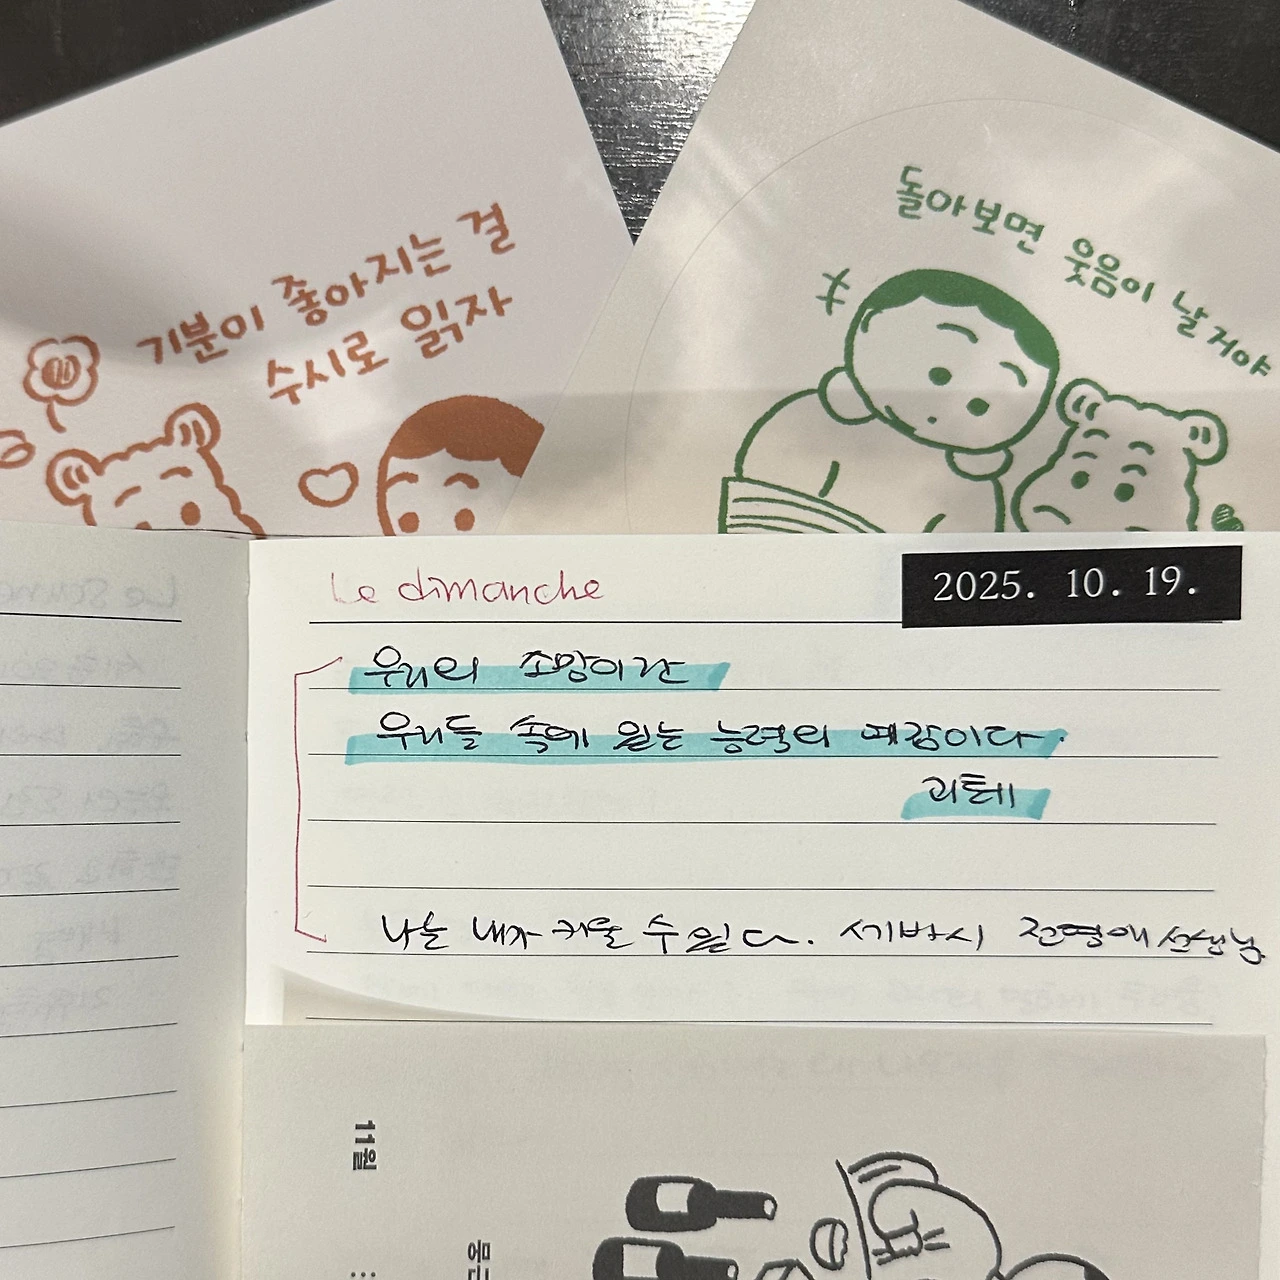 기분이 좋아지는 걸
수시로 읽자
돌아보면 웃음이 날 거야
Le dimanche
2025. 10. 19.
우리의 소망이란
우리들 속에 있는 능력의 예감이다.
괴테
나는 내가 키울 수 있다. 세바시 전영애 선생님
11월